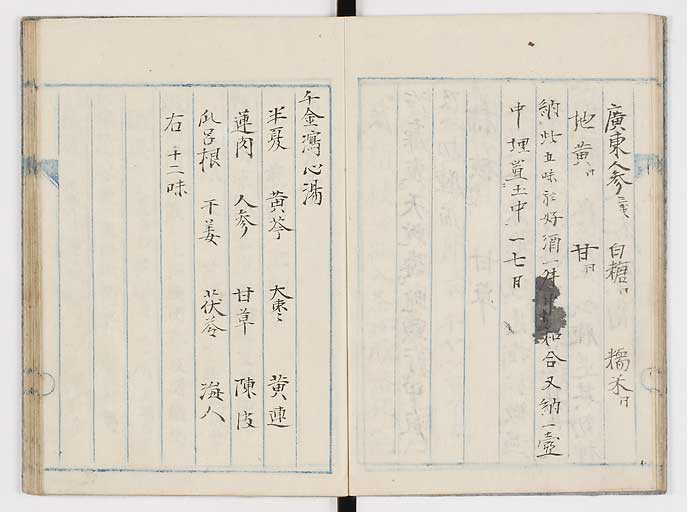 廣東人参 白糖 糯米
地黄 甘
納此五味於好酒一 和合又納一壷
中埋置土中一七日
千金瀉心湯
半夏 黄芩 大棗 黄連
蓮肉 人参 甘草 陳皮
瓜呂根 干姜 茯苓 海人
右十二味